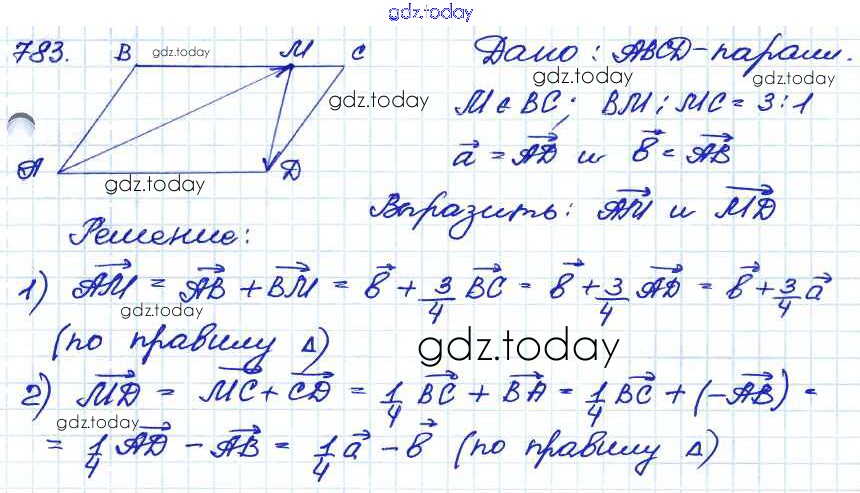 gdz.today
783.
B gdz.today M C
gdz.today
A D
gdz.today
Дано: ABCD - парал.
gdz.today gdz.today
M ∈ BC; BM : MC = 3 : 1
a⃗ = AD⃗ и b⃗ = AB⃗
Выразить: AM⃗ и MD⃗
Решение:
1) AM⃗ = AB⃗ + BM⃗ = b⃗ + 3/4 BC⃗ = b⃗ + 3/4 AD⃗ = b⃗ + 3/4 a⃗
gdz.today
(по правилу Δ) gdz.today
2) MD⃗ = MC⃗ + CD⃗ = 1/4 BC⃗ + BA⃗ = 1/4 BC⃗ + (-AB⃗) =
gdz.today
= 1/4 AD⃗ - AB⃗ = 1/4 a⃗ - b⃗ (по правилу Δ)